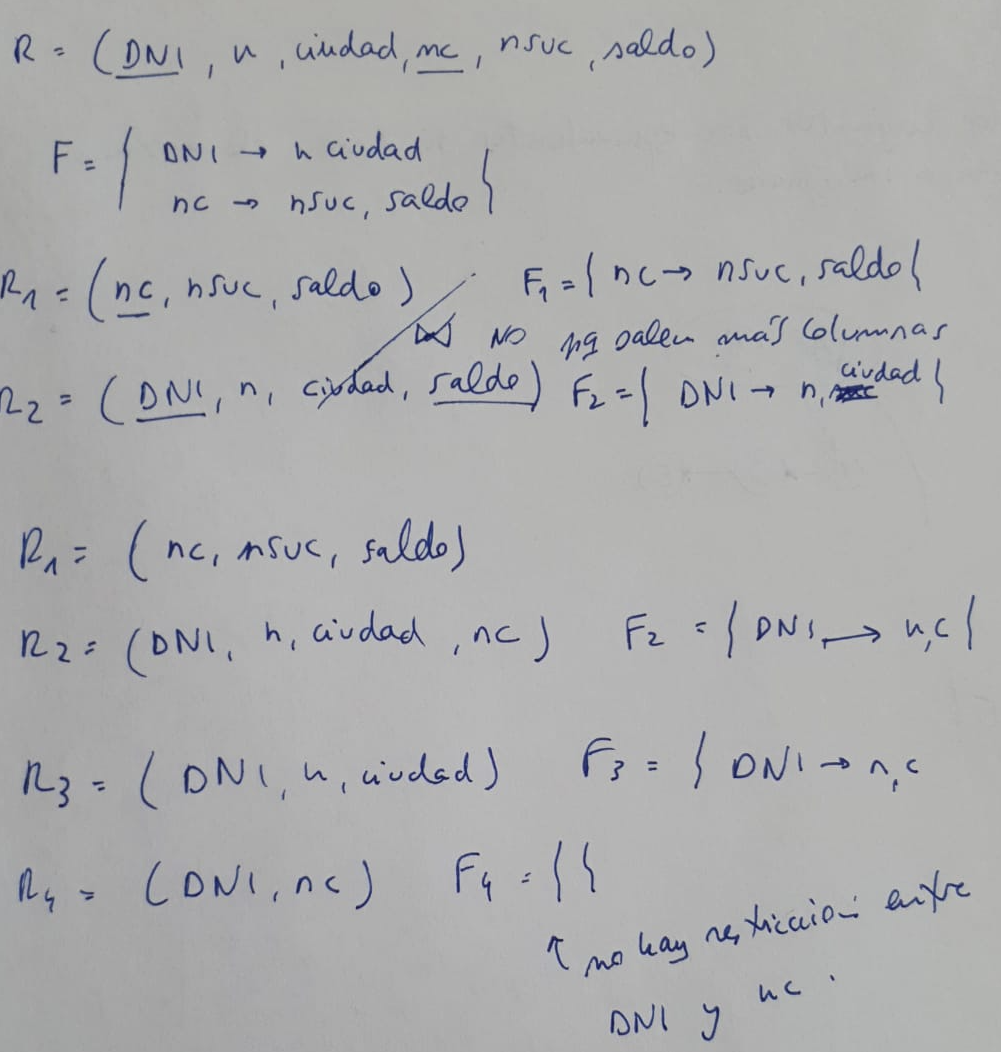 R = (DNI, n, ciudad, nc, nsuc, saldo)
F = { DNI → n ciudad
nc → nsuc, saldo }
R1 = (nc, nsuc, saldo) F1 = { nc → nsuc, saldo }
⋈ NO pq salen más columnas
R2 = (DNI, n, ciudad, saldo) F2 = { DNI → n, ciudad }
R1 = (nc, nsuc, saldo)
R2 = (DNI, n, ciudad, nc) F2 = { DNI → n, c }
R3 = (DNI, n, ciudad) F3 = { DNI → n, c
R4 = (DNI, nc) F4 = { }
↑ no hay restricción entre
DNI y nc.